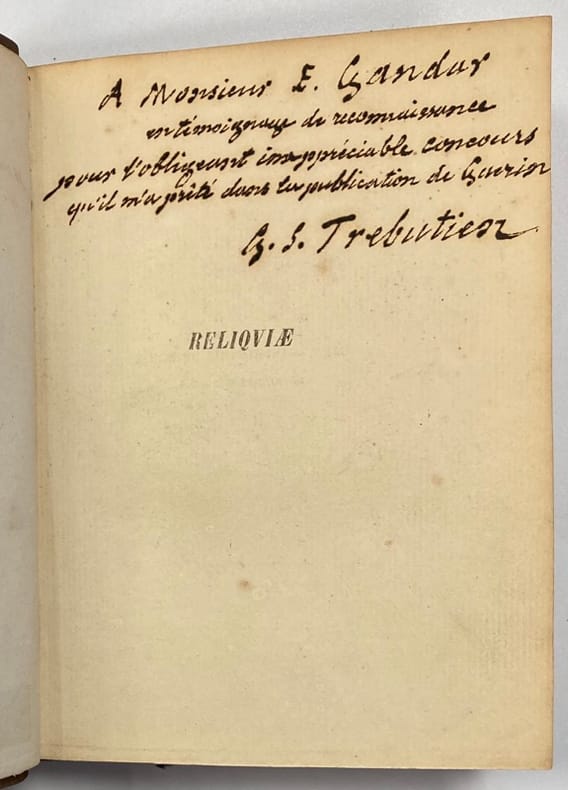 A Monsieur E. Gandar
en témoignage de reconnaissance
pour l'obligeant inappréciable concours
qu'il m'a prêté dans la publication de Guerin
G. S. Trebutien
RELIQVIÆ